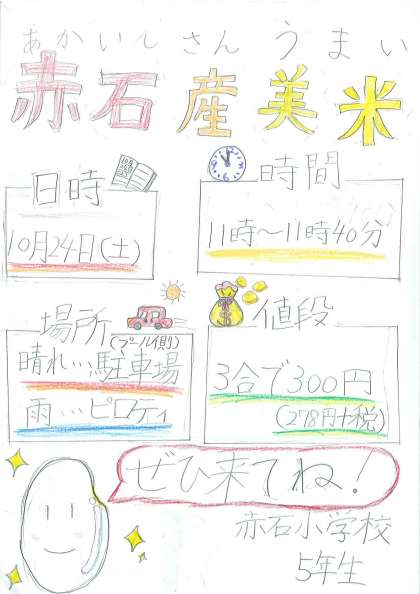 あかいしさん うまい
赤石産美米
日時
10月24日(土)
時間
11時〜11時40分
場所
(プール側)
晴れ…駐車場
雨…ピロティ
値段
3合で300円
(278円+税)
ぜひ来てね!
赤石小学校
5年生